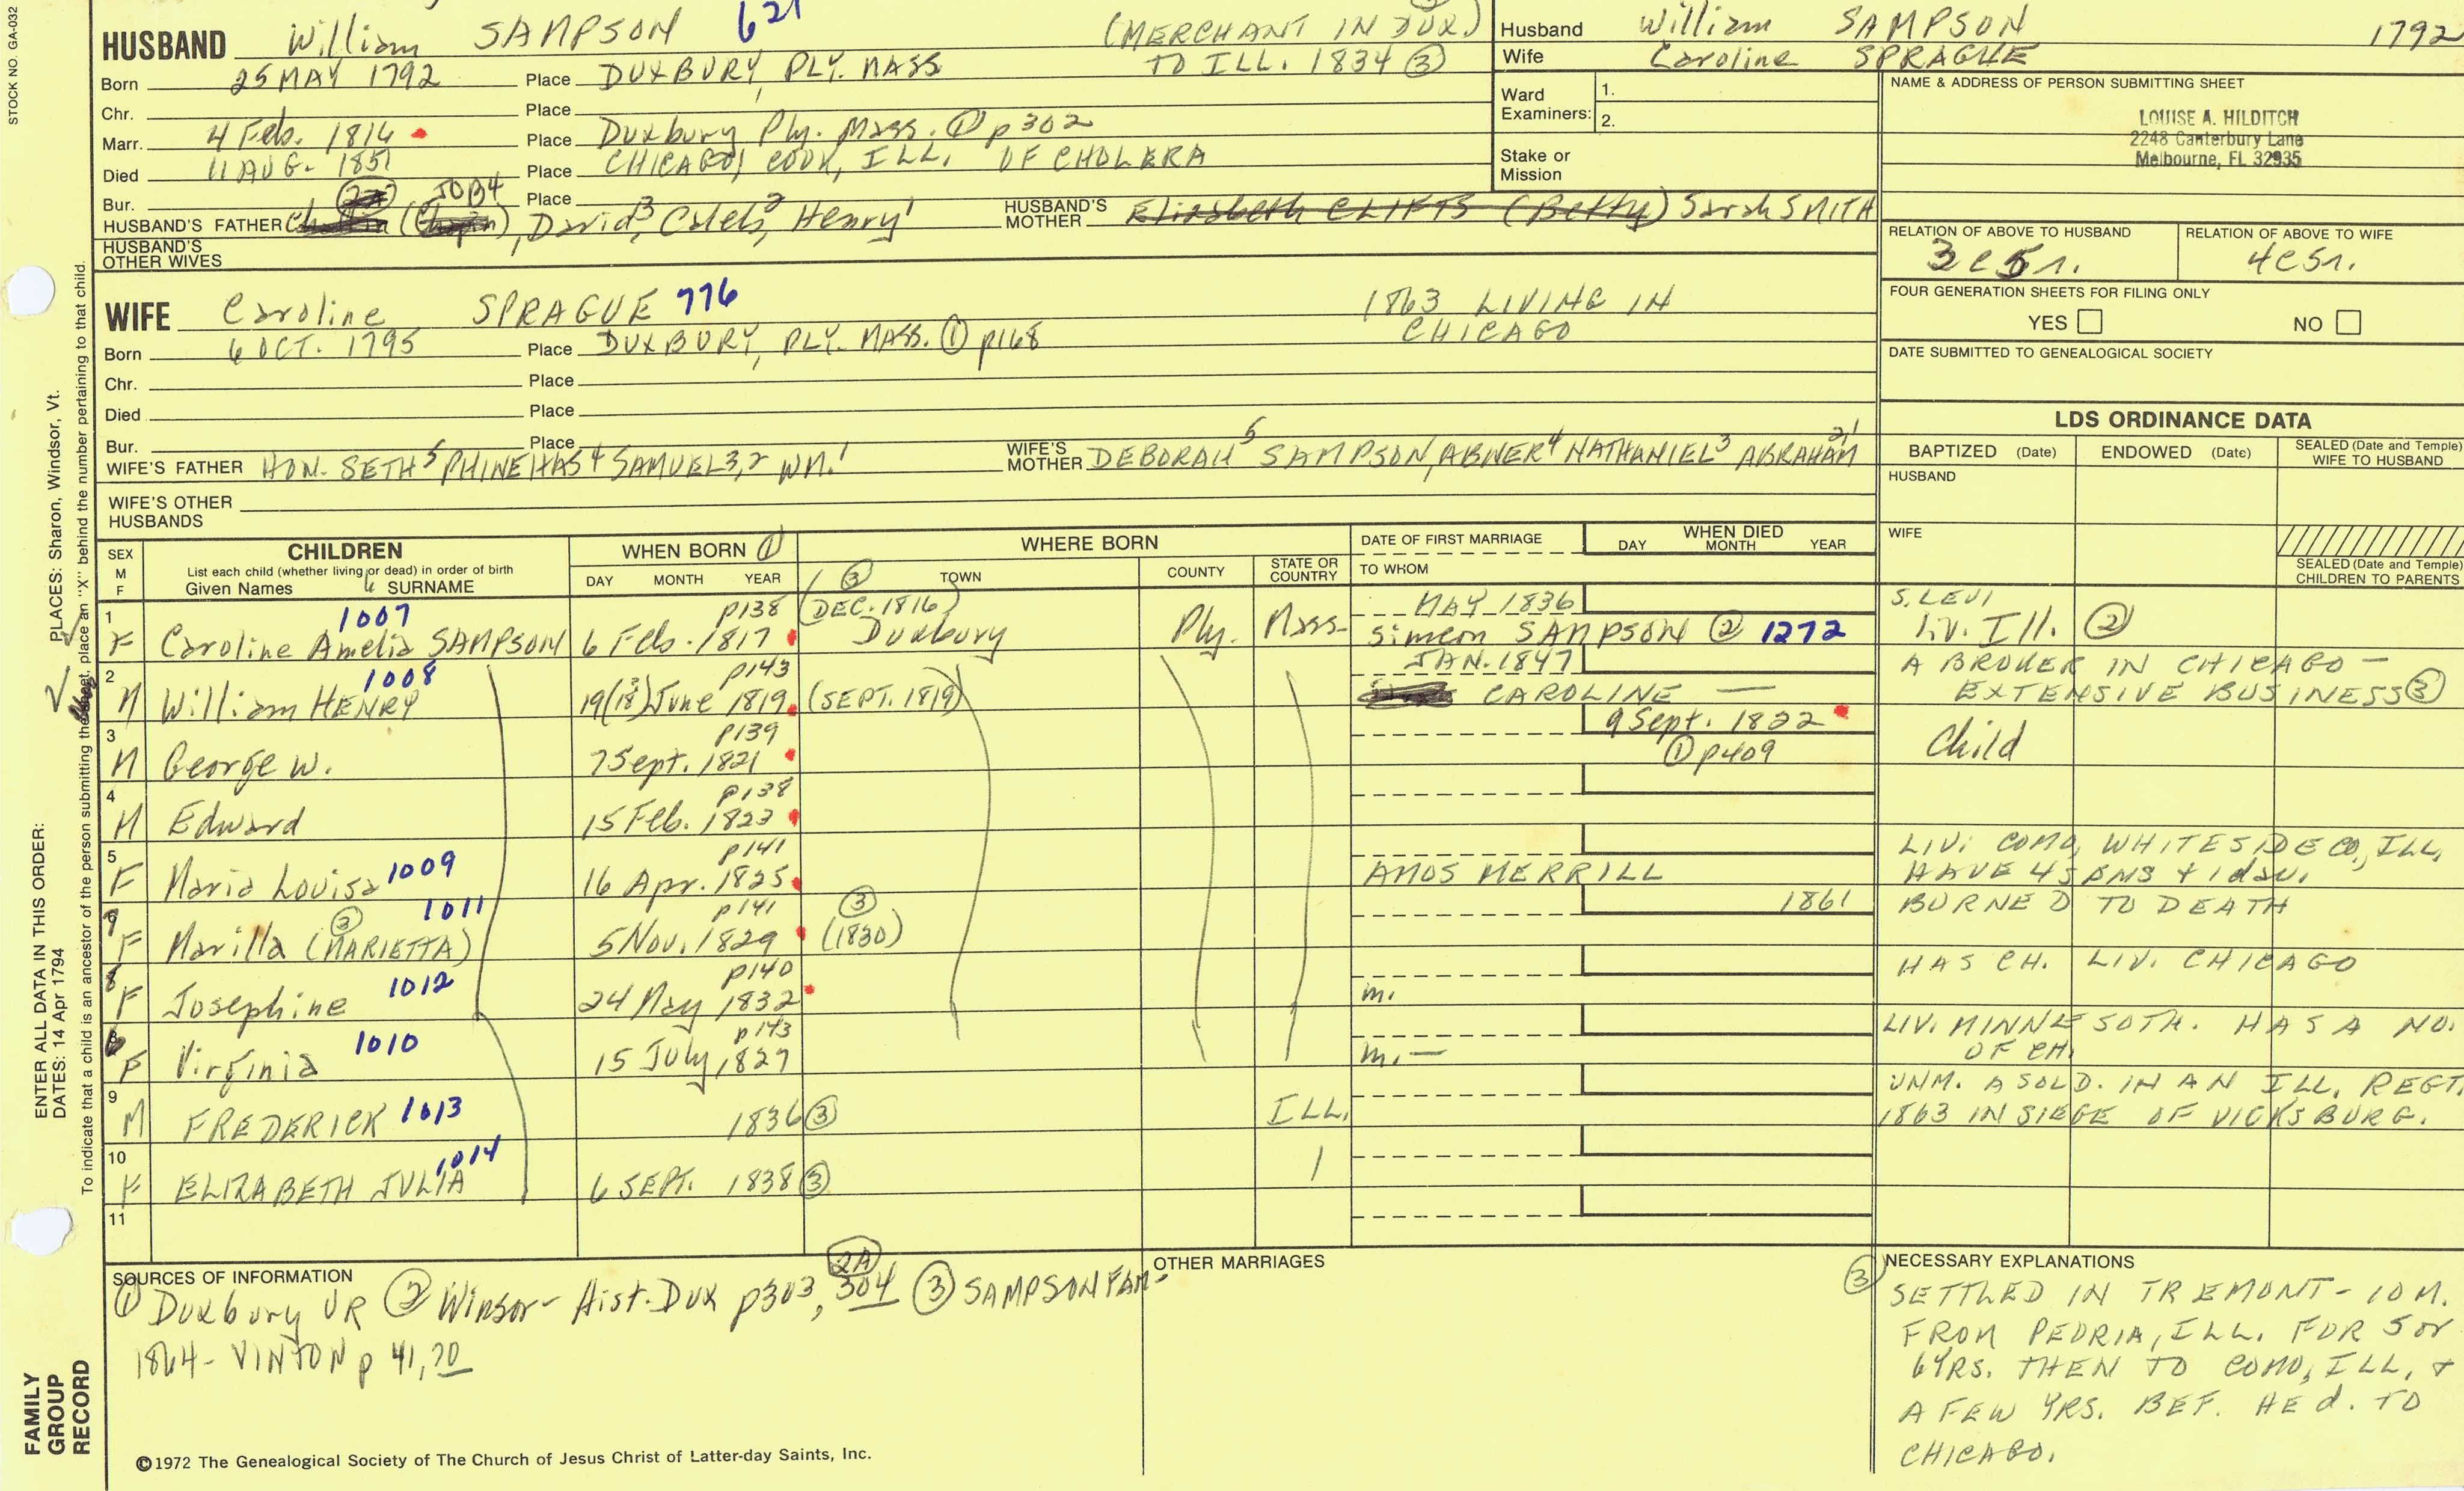 STOCK NO. GA-032
HUSBAND William SAMPSON 621 (MERCHANT IN DUX)
Born 25 MAY 1792 Place DUXBURY, PLY. MASS TO ILL. 1834 ③
Chr. Place
Marr. 4 Feb. 1816 Place Duxbury Ply. Mass. ① p302
Died 11 AUG. 1851 Place CHICAGO, COOK, ILL. OF CHOLERA
Bur. Place
JOB4
HUSBAND'S FATHER , David3, Caleb2, Henry1 HUSBAND'S MOTHER Elizabeth CLIFTS (Betty) Sarah SMITH
HUSBAND'S OTHER WIVES
Husband William SAMPSON 1792
Wife Caroline SPRAGUE
Ward Examiners: 1.
2.
Stake or Mission
NAME & ADDRESS OF PERSON SUBMITTING SHEET
LOUISE A. HILDITCH
2248 Canterbury Lane
Melbourne, FL 32935
RELATION OF ABOVE TO HUSBAND RELATION OF ABOVE TO WIFE
3c5r. 4c5r.
FOUR GENERATION SHEETS FOR FILING ONLY
YES NO
DATE SUBMITTED TO GENEALOGICAL SOCIETY
WIFE Caroline SPRAGUE 776 1863 LIVING IN
CHICAGO
Born 6 OCT. 1795 Place DUXBURY, PLY. MASS. ① p168
Chr. Place
Died Place
Bur. Place
WIFE'S FATHER HON. SETH5 PHINEHAS4 SAMUEL3,2 WM.1 WIFE'S MOTHER DEBORAH5 SAMPSON, ABNER4 NATHANIEL3 ABRAHAM2,1
WIFE'S OTHER HUSBANDS
LDS ORDINANCE DATA
BAPTIZED (Date) ENDOWED (Date) SEALED (Date and Temple) WIFE TO HUSBAND
HUSBAND
WIFE
SEALED (Date and Temple) CHILDREN TO PARENTS
SEX M F CHILDREN WHEN BORN ① WHERE BORN DATE OF FIRST MARRIAGE WHEN DIED
List each child (whether living or dead) in order of birth
Given Names SURNAME DAY MONTH YEAR ③ TOWN COUNTY STATE OR COUNTRY TO WHOM DAY MONTH YEAR
1 1007 p138 (DEC. 1816) MAY 1836 S. LEVI
F Caroline Amelia SAMPSON 6 Feb. 1817 Duxbury Ply. Mass. Simeon SAMPSON ② 1272 liv. Ill. ②
2 1008 p143 JAN. 1847 A BROKER IN CHICAGO -
M William HENRY 19(18) June 1819 (SEPT. 1819) CAROLINE — EXTENSIVE BUSINESS ③
3 p139 9 Sept. 1822
M George W. 7 Sept. 1821 ① p409 Child
4 p138
M Edward 15 Feb. 1823
5 p141 LIV. COMO, WHITESIDE CO, ILL.
F Maria Louisa 1009 16 Apr. 1825 AMOS MERRILL HAVE 4 SONS + 1 dau.
7 ③ 1011 p141 ③ 1861 BURNED TO DEATH
F Marilla (MARIETTA) 5 Nov. 1829 (1830)
8 p140 HAS CH. LIV. CHICAGO
F Josephine 1012 24 May 1832 m.
6 p143 LIV. MINNESOTA. HAS A NO.
F Virginia 1010 15 July 1827 m. — OF CH.
9 UNM. A SOLD. IN AN ILL. REGT.
M FREDERICK 1013 1836 ③ ILL. 1863 IN SIEGE OF VICKSBURG.
10 1014
F ELIZABETH JULIA 6 SEPT. 1838 ③
11
SOURCES OF INFORMATION
① Duxbury VR ② Winsor - Hist. Dux p303, 304 2A ③ SAMPSON FAM-
1864 - VINTON p 41, 70
OTHER MARRIAGES
③ NECESSARY EXPLANATIONS
SETTLED IN TREMONT - 10 M.
FROM PEORIA, ILL. FOR 5 or
6 YRS. THEN TO COMO, ILL, +
A FEW YRS. BEF. HE d. TO
CHICAGO.
©1972 The Genealogical Society of The Church of Jesus Christ of Latter-day Saints, Inc.
FAMILY GROUP RECORD
ENTER ALL DATA IN THIS ORDER:
DATES: 14 Apr 1794
PLACES: Sharon, Windsor, Vt.
To indicate that a child is an ancestor of the person submitting the sheet, place an "X" behind the number pertaining to that child.